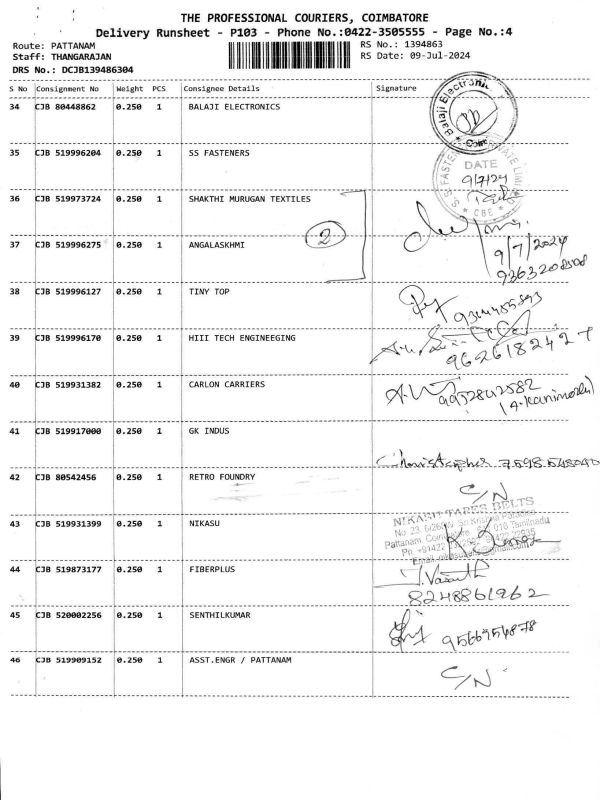 THE PROFESSIONAL COURIERS, COIMBATORE
Delivery Runsheet - P103 - Phone No.:0422-3505555 - Page No.:4
Route: PATTANAM
RS No.: 1394863
Staff: THANGARAJAN
RS Date: 09-Jul-2024
DRS No.: DCJB139486304
S No Consignment No Weight PCS Consignee Details Signature
34 CJB 80448862 0.250 1 BALAJI ELECTRONICS
Balaji Electronics
35 CJB 519996204 0.250 1 SS FASTENERS
DATE
9/7/24
CBE
36 CJB 519973724 0.250 1 SHAKTHI MURUGAN TEXTILES
2
37 CJB 519996275 0.250 1 ANGALASKHMI
9/7/2024
9363208508
38 CJB 519996127 0.250 1 TINY TOP
39 CJB 519996170 0.250 1 HIII TECH ENGINEEGING
9626182427
40 CJB 519931382 0.250 1 CARLON CARRIERS
9952842582
(A.Kanimozhi)
41 CJB 519917000 0.250 1 GK INDUS
Christopher 7598548040
42 CJB 80542456 0.250 1 RETRO FOUNDRY
C/N
43 CJB 519931399 0.250 1 NIKASU
NIKASU TAPES BELTS
44 CJB 519873177 0.250 1 FIBERPLUS
J.Vasanth
8248861962
45 CJB 520002256 0.250 1 SENTHILKUMAR
9566954878
46 CJB 519909152 0.250 1 ASST.ENGR / PATTANAM
C/N